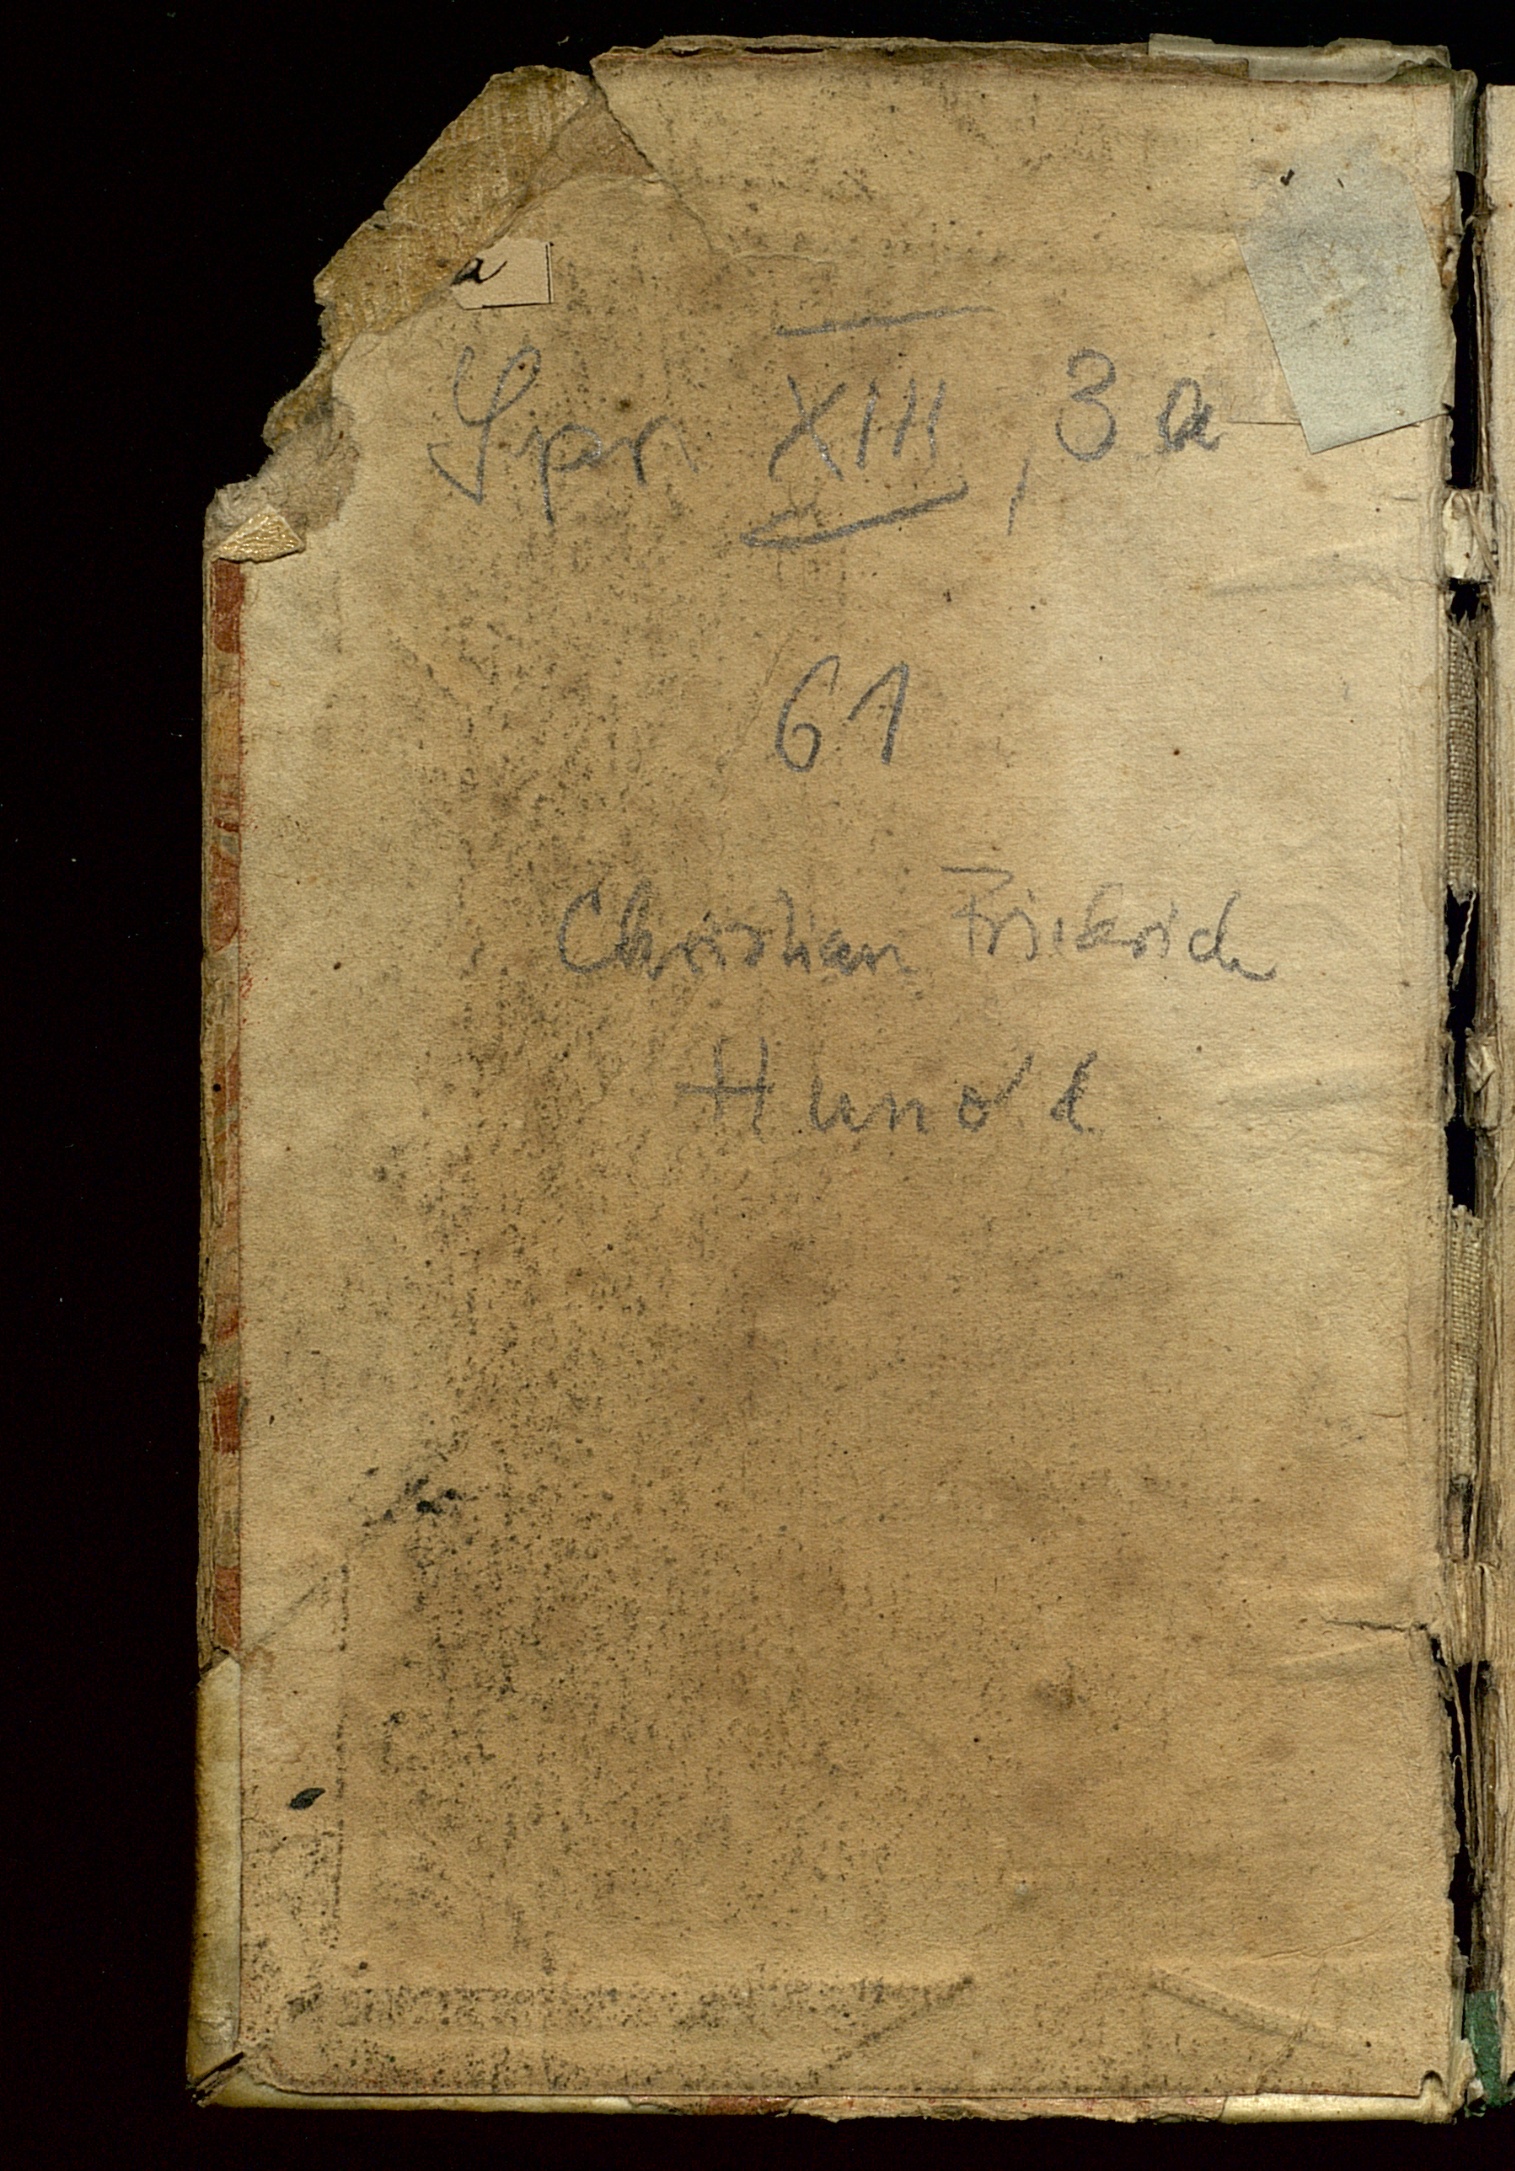 a
Spr. XIII, 3 a
61
Christian Friedrich
Hunold